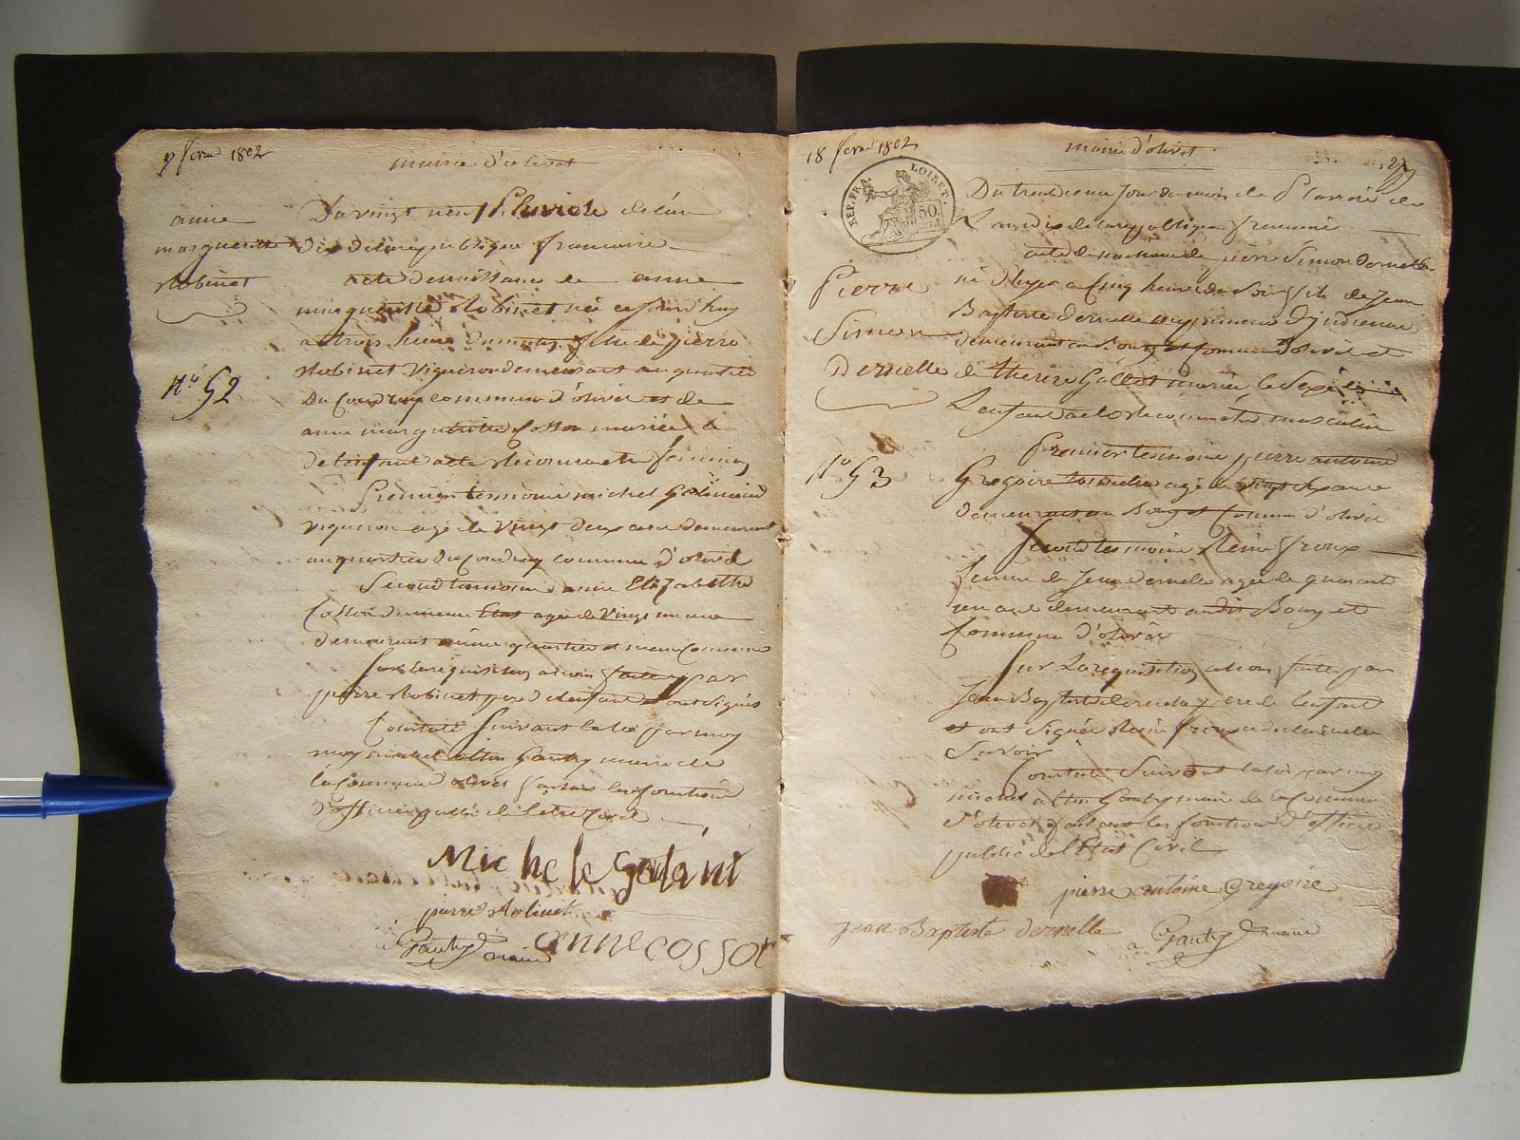 fevr 1802
mairie d'olivet
anne
marguerite
Robinet
n° 52
Du vingt neuf Pluviose de l'an
dix de la republique francaise
acte de naissance de anne
marguerite Robinet née ce jourd'huy
a trois heure du matin fille de pierre
Robinet vigneron demeurant au quartié
Du Coudray commune d'olivet et de
anne marguerite Cosson mariée le
de l'enfant a eté Reconnu etre feminin
Premier temoins michel
vigneron agé de vingt deux ans demeurant
au quartier du Coudray commune d'olivet
Second temoins anne Elizabethe
Cosson du meme Etat agée de vingt un ans
demeurant meme quartier et meme Commune
Sur la requisition a nous faite par
pierre Robinet pere de l'enfant et ont signés
Constaté suivant la loi par moy
maire de
la Commune d'olivet faisant les fonctions
d'officier public de l'etat Civil
Michel
pierre Robinet
anne cosson
maire
18 fevr 1802
mairie d'olivet
REP. FRA. LOIRET.
50
Du trente un jour du mois de Pluviose de
L'an dix de la republique francaise
acte de naissance de pierre Simon dernelle
Pierre
Simon
Dernelle
n° 53
né d'hyer a cinq heure du soir fils de Jean
Baptiste dernelle
demeurant au Bourg et commune d'olivet et
de therese mariée le Sexe de
L'enfant a eté reconnu etre masculin
Premier temoins pierre antoine
Gregoire agé de vingt ans
demeurant au Bourg et Commune d'olivet
Second temoins Reine froux
femme de Jean dernelle agée de quarante
un ans demeurant audit Bourg et
Commune d'olivet
Sur La requisition a nous faite par
Jean Baptiste dernelle pere de l'enfant
et ont signée Reine froux a declaré ne le
Savoir
Constaté Suivant la loi par moy
maire de la Commune
d'olivet faisant les fonctions d'officier
public de l'Etat Civil
pierre antoine gregoire
jean Baptiste dernelle
maire